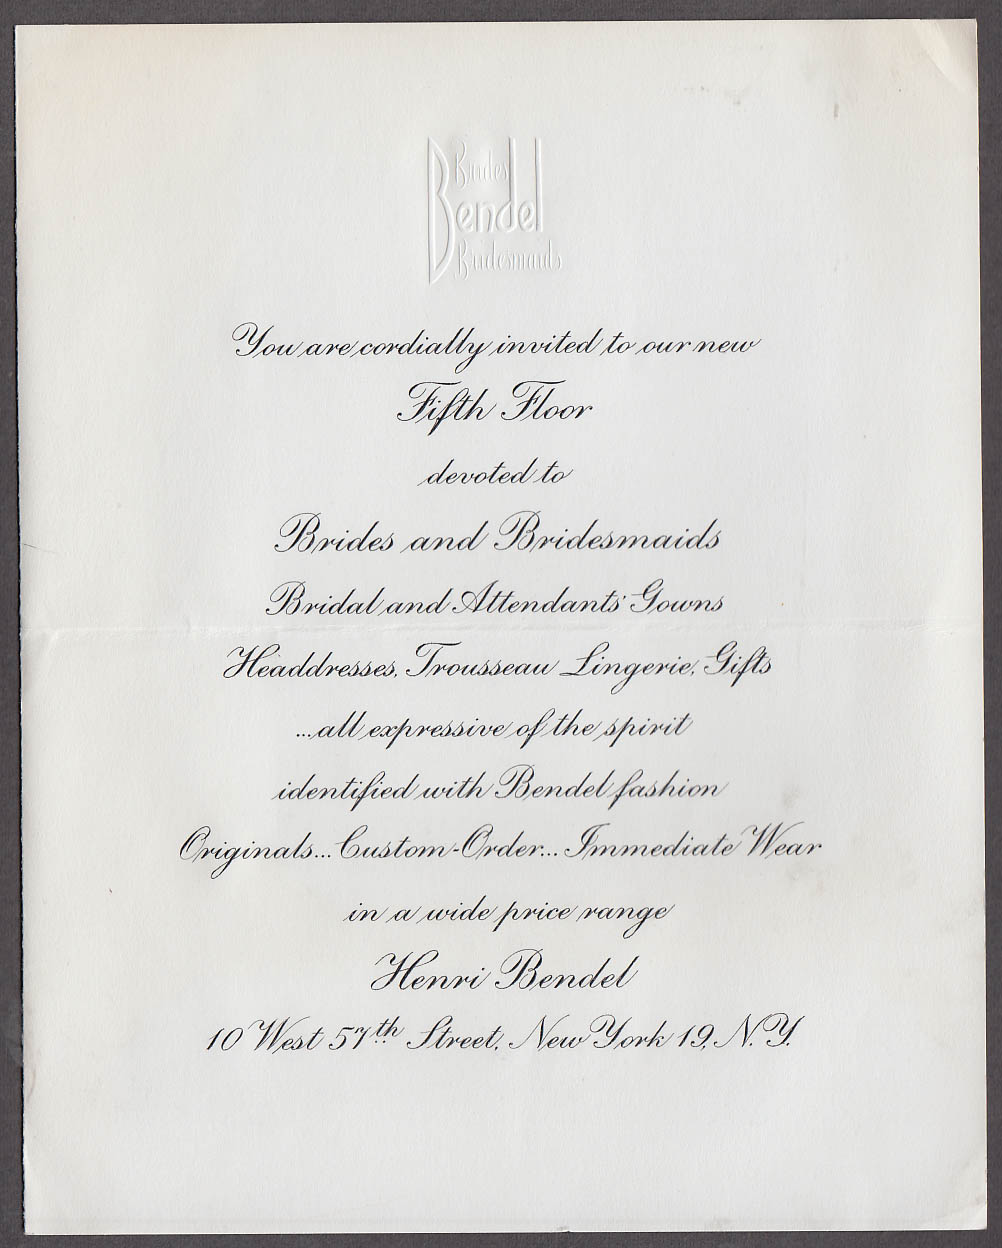 Brides
Bendel
Bridesmaids
You are cordially invited to our new
Fifth Floor
devoted to
Brides and Bridesmaids
Bridal and Attendants' Gowns
Headdresses, Trousseau Lingerie, Gifts
...all expressive of the spirit
identified with Bendel fashion
Originals... Custom-Order... Immediate Wear
in a wide price range
Henri Bendel
10 West 57th Street, New York 19, N.Y.